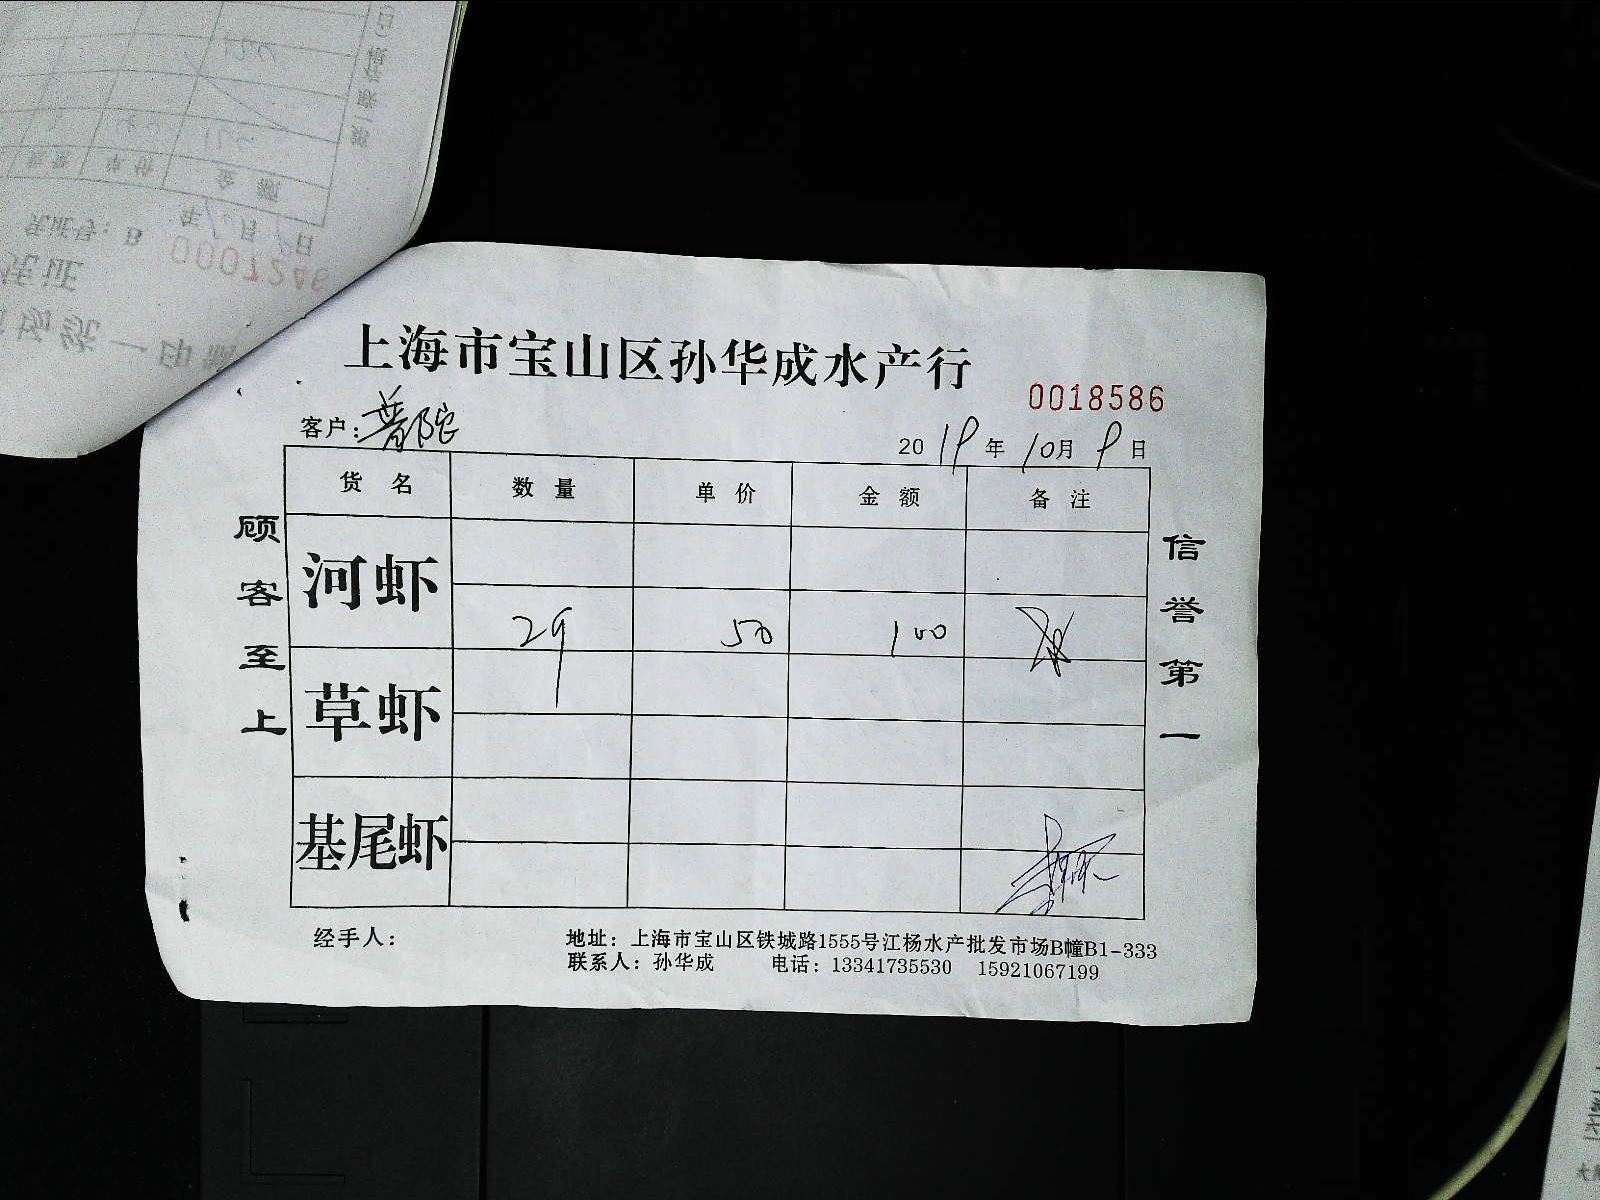 上海市宝山区孙华成水产行
0018586
客户: 普陀
2019年10月9日
货名 数量 单价 金额 备注
河虾
29 50 100
草虾
基尾虾
顾客至上
信誉第一
经手人:
地址: 上海市宝山区铁城路1555号江杨水产批发市场B幢B1-333
联系人: 孙华成 电话: 13341735530 15921067199
0007246